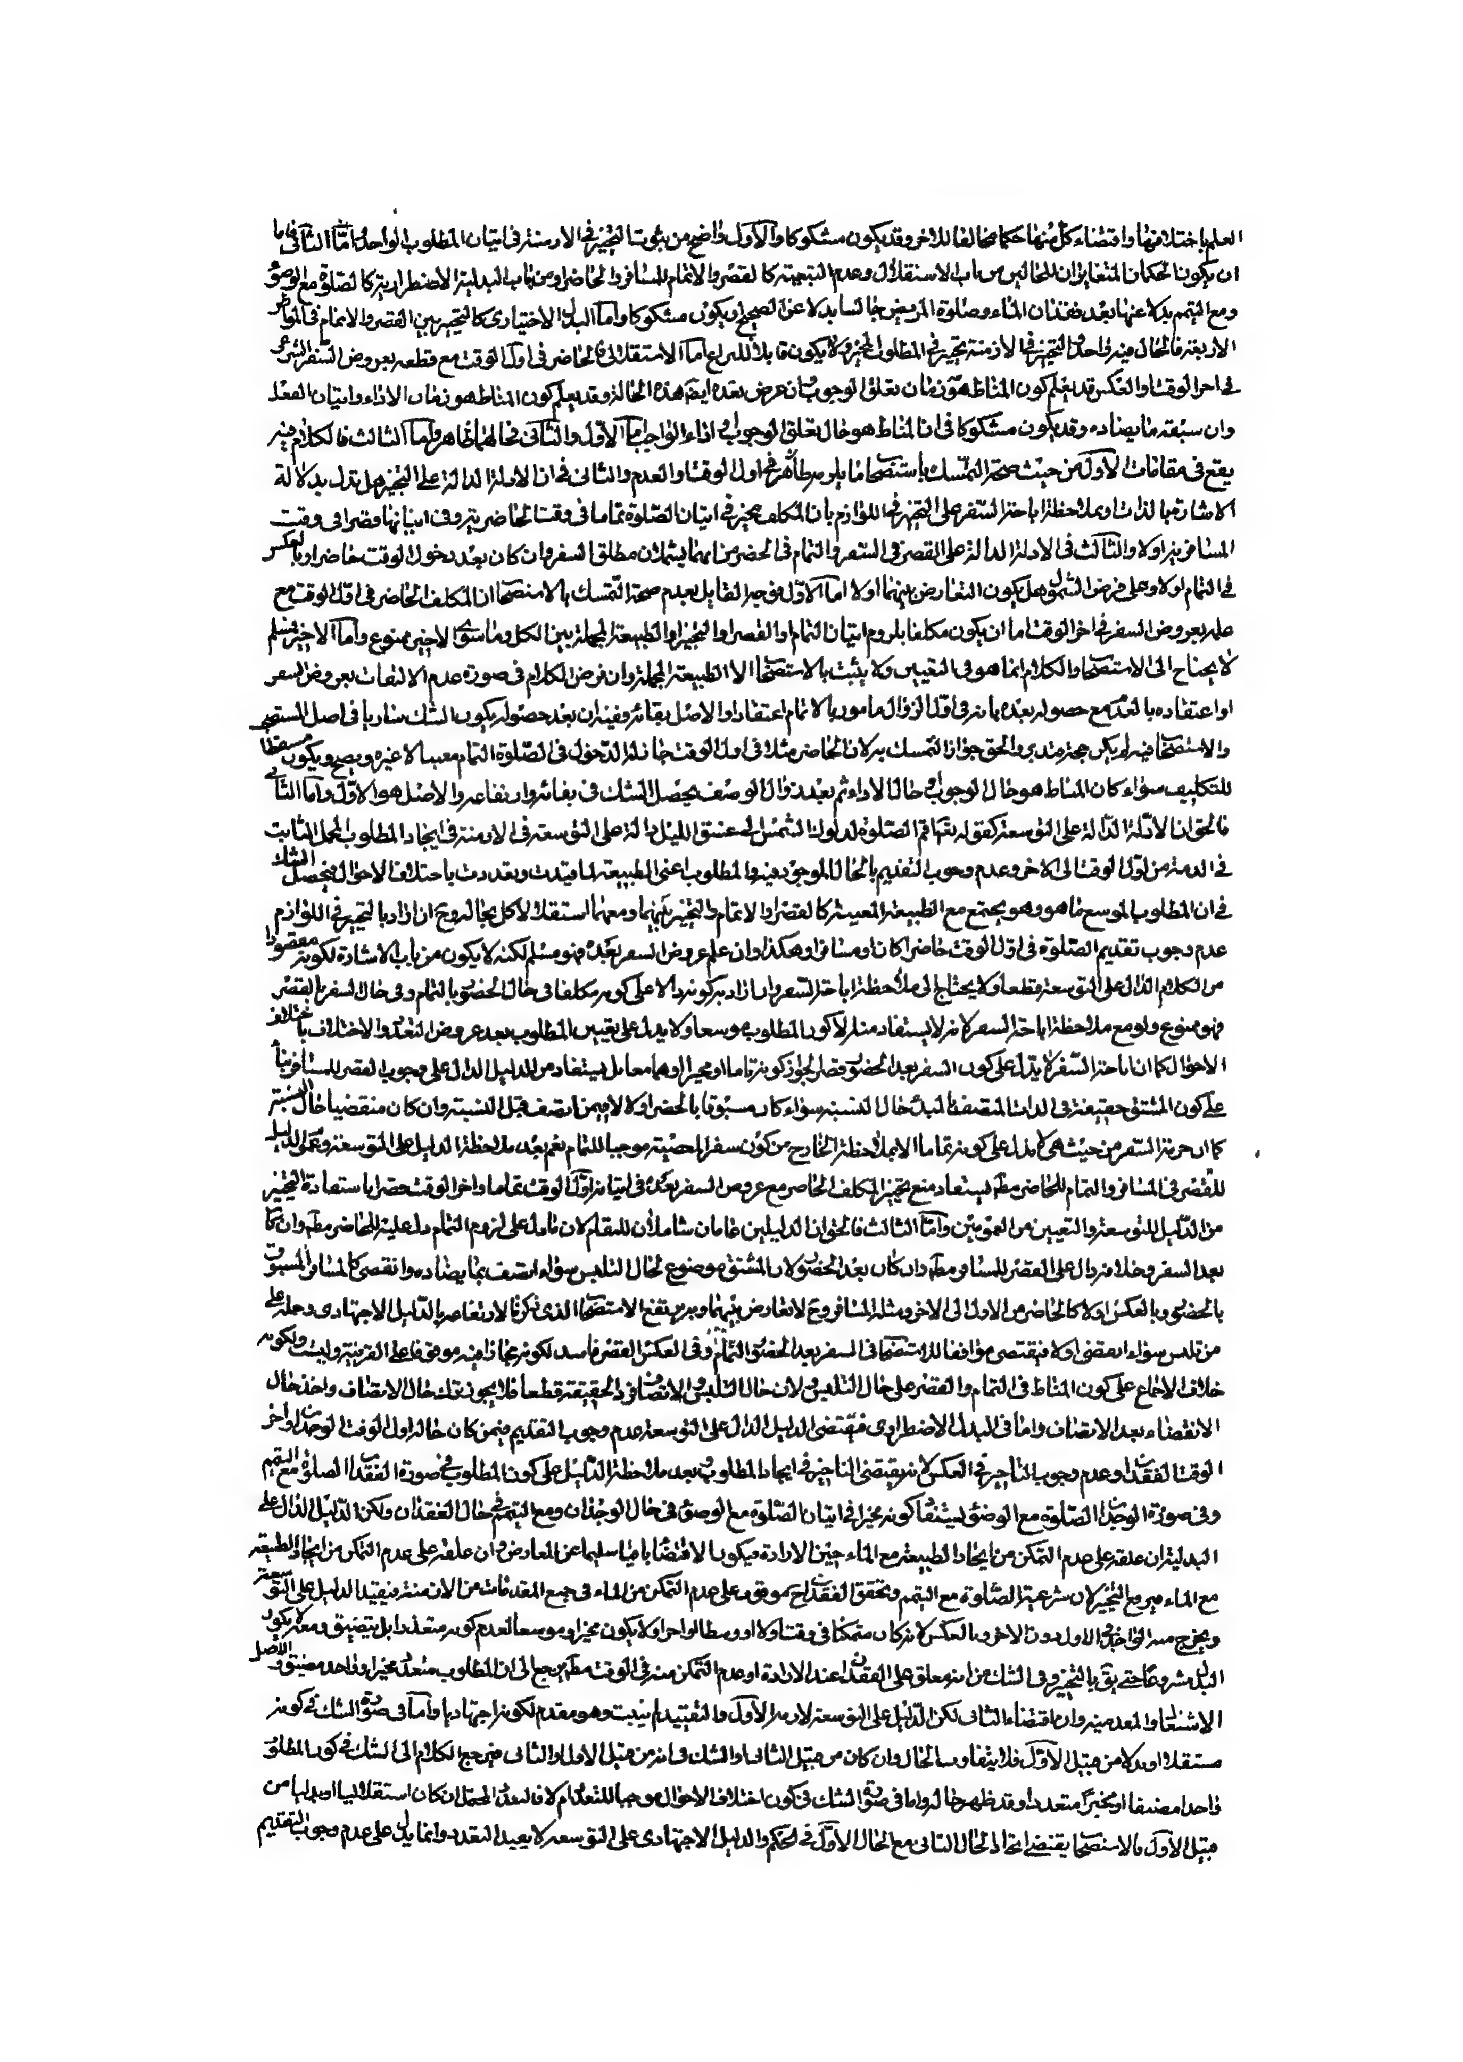 العلم باختلافها واقتضاء كل منها حكما مخالفا للاخر وقد يكون مشكوكا والاول واضح من ثبوت التخيير في الازمنة في اتيان المطلوب الواحد واما الثاني فاما
ان يكونا الحكمان المتغايران للحالين من باب الاستقلال وعدم التبعية كالقصر والاتمام للمسافر والحاضر او من باب البدلية الاضطرارية كالصلوة مع الوضوء
ومع التيمم بدلا عنها بعد فقدان الماء وصلوة المريض جالسا بدلا عن الصحيح او يكون مشكوكا واما البدل الاختياري كالتخيير بين القصر والاتمام في المواطن
الاربعة فالحال فيه واحد والتخيير في الازمنة تخيير في المطلوب المخير ولا يكون قابلا للنزاع اما الاستقلال فالحاضر في اول الوقت مع قطعه بعروض السفر الشرعي
في اخر الوقت او العكس قد يعلم كون المناط هو زمان تعلق الوجوب وان عرض بعده ايضا هذه الحالة وقد يعلم كون المناط هو زمان الاداء واتيان الفعل
وان سبقه ما يضاده وقد يكون مشكوكا في ان المناط هو حال تعلق الوجوب او اداء الواجب اما الاول والثاني فحالهما ظاهر واما الثالث فالكلام فيه
يقع في مقامات الاول من حيث صحة التمسك باستصحاب ما يلزمه ظاهرا في اول الوقت او العدم والثاني في ان الادلة الدالة على التخيير هل تدل بدلالة
الاشارة بالذات او بملاحظة اباحة السفر على التخيير في اللوازم بان المكلف مخير في اتيان الصلوة تماما في وقت الحاضرية وفي اتيانها قصرا في وقت
المسافرية اولا والثالث في الادلة الدالة على القصر في السفر والتمام في الحضر من انهما يشملان مطلق السفر وان كان بعد دخول الوقت حاضرا وبالعكس
في التمام اولا وعلى فرض الشمول هل يكون التعارض بينهما اولا اما الاول فوجه القايل بعدم صحة التمسك بالاستصحاب ان المكلف الحاضر في اول الوقت مع
علمه بعروض السفر في اخر الوقت اما ان يكون مكلفا بلزوم اتيان التمام او القصر او التخيير او الطبيعة المجملة بين الكل وما سوى الاخير ممنوع واما الاخير فمسلم
لا يحتاج الى الاستصحاب والكلام انما هو في التعيين ولا يثبت بالاستصحاب الا الطبيعة المجملة وان فرض الكلام في صورة عدم الالتفات بعروض السفر
او اعتقاده بالعدم مع حصوله بعده بانه في اول الزوال مامور بالاتمام اعتقادا والاصل بقائه وفيه ان بعد حصوله يكون الشك ساريا في اصل المستصحب
والاستصحاب فيه لم يكن حجة والحق جواز التمسك به لان الحاضر مثلا في اول الوقت حاله الدخول في الصلوة التمام معينا لا غيره ويصح ويكون مسقطا
للتكليف سواء كان المناط هو حال الوجوب او حال الاداء ثم بعد زوال الوصف يحصل الشك في بقائه وارتفاعه والاصل هو الاول واما الثاني
فالحق ان الادلة الدالة على التوسعة كقوله تعالى اقم الصلوة لدلوك الشمس الى غسق الليل دالة على التوسعة في الازمنة في ايجاد المطلوب المجمل الثابت
في الذمة من اول الوقت الى الاخر وعدم وجوب التقديم بالحال الموجود فيه والمطلوب اعنى الطبيعة لما قيدت وتعددت باختلاف الاحوال فيحصل الشك
في ان المطلوب الموسع ما هو وهو يجتمع مع الطبيعة المعينة كالقصر او الاتمام والتخيير بينهما ومعهما استقلالا كل بحاله وح ان اراد بالتخيير في اللوازم
عدم وجوب تقديم الصلوة في اول الوقت حاضرا كان او مسافرا وهكذا وان علم عروض السفر بعده فهو مسلم لكنه لا يكون من باب الاشارة لكونه مقصودا
من الكلام الدال على التوسعة قطعا ولا يحتاج الى ملاحظة اباحة السفر وان اراد به كونه دالا على كونه مكلفا في حال الحضور بالتمام وفي حال السفر بالقصر
فهو ممنوع ولو مع ملاحظة اباحة السفر لانه لا يستفاد منه الا كون المطلوب موسعا ولا يدل على تعيين المطلوب بعد عروض التعدد والاختلاف باختلاف
الاحوال كما ان اباحة السفر لا يدل على كون السفر بعد الحضور قصرا لجواز كونه تماما او مخيرا او هما معا بل يستفاد من الدليل الدال على وجوب القصر للمسافر بناء
على كون المشتق حقيقة في الذات المتصفة بالمبدء حال النسبة سواء كان مسبوقا بالحضر اولا لا فيمن اتصف قبل النسبة وان كان منقضيا حال النسبة
كما ان حرمة السفر من حيث هي لا يدل على كونه تماما الا بملاحظة الخارج من كون سفر المعصية موجبا للتمام نعم بعد ملاحظة الدليل على التوسعة وعموم الدليل
للقصر في المسافر والتمام للحاضر مط يستفاد منع تخيير المكلف الحاضر مع عروض السفر بعده في اتيانه اول الوقت تماما واخر الوقت قصرا باستفادة التخيير
من الدليل للتوسعة والتعيين من العمومين واما الثالث فالحق ان الدليلين عامان شاملان للمقام لان ما دل على لزوم التمام دل عليه للحاضر مط وان كان
بعد السفر وخلافه دال على القصر للمسافر مط وان كان بعد الحضور ولان المشتق موضوع لحال التلبس سواء اتصف بما يضاده وانقضى كالمسافر المسبوق
بالحضور وبالعكس اولا كالحاضر من الاول الى الاخر ومثله المسافر وح لا تعارض بينهما وبه يرتفع الاستصحاب الذي ذكرنا لارتفاعه بالدليل الاجتهادي وحمله على
من تلبس سواء انقضى اولا فيقتضى موافقا للاستصحاب في السفر بعد الحضور التمام وفي العكس القصر فاسد لكونه مجازا فيه موقوفا على القرينة وليست ولكونه
خلاف الاجماع على كون المناط في التمام والقصر على حال التلبس ولان حال التلبس والاتصاف فرد الحقيقة قطعا فلا يجوز ترك حال الاتصاف واخذ حال
الانقضاء بعد الاتصاف واما في البدل الاضطراري فيقتضى الدليل الدال على التوسعة عدم وجوب التقديم فيمن كان حاله اول الوقت الوجدان واخر
الوقت الفقدان وعدم وجوب التاخير في العكس لانه يقتضى التاخير في ايجاد المطلوب وبعد ملاحظة الدليل على كون المطلوب في صورة الفقدان الصلوة مع التيمم
وفي صورة الوجدان الصلوة مع الوضوء يستفاد كونه مخيرا في اتيان الصلوة مع الوضوء في حال الوجدان ومع التيمم في حال الفقدان ولكن الدليل الدال على
البدلية ان علقه على عدم التمكن من ايجاد الطبيعة مع الماء حين الارادة فيكون الاقتضاء باقيا سليما عن المعارض وان علقه على عدم التمكن من ايجاد الطبيعة
مع الماء فيرفع التخيير لان شرعية الصلوة مع التيمم وتحقق الفقدان ح موقوف على عدم التمكن من الماء في جميع المقدمات من الازمنة فيقيد الدليل على التوسعة
ويخرج منه الواجد في الاول دون الاخر وبالعكس لانه كان متمكنا في وقت اولا او وسطا او اخرا ولا يكون مخيرا وموسعا لعدم كونه متعددا بل بتضييق ومعه لا يكون
البدل مشروعا حتى يق بالتخيير وفي الشك من انه معلق على الفقدان عند الارادة او عدم التمكن منه في الوقت مط يرجع الى ان المطلوب متعدد مخيرا او واحد مضيق والاصل
الاشتغال والعدمية وان اقتضاء الثاني لكن الدليل على التوسعة لازمه الاول والتقييد لم يثبت وهو مقدم لكونه اجتهاديا واما في صورة الشك في كونه
مستقلا او بدلا من قبيل الاول فلا يتفاوت الحال وان كان من قبيل الثاني او الشك في انه من قبيل الاول او الثاني فيرجع الكلام الى الشك في كون المطلوب
واحدا مضيقا او مخيرا متعددا وقد ظهر حاله واما في صورة الشك في كون اختلاف الاحوال موجبا للتعدد ام لا فالتعدد المحتمل ان كان استقلاليا او بدليا من
قبيل الاول فالاستصحاب يقتضى اتحاد الحال الثاني مع الحال الاول في الحكم والدليل الاجتهادي على التوسعة لا يفيد التعدد وانما يدل على عدم وجوب التقديم